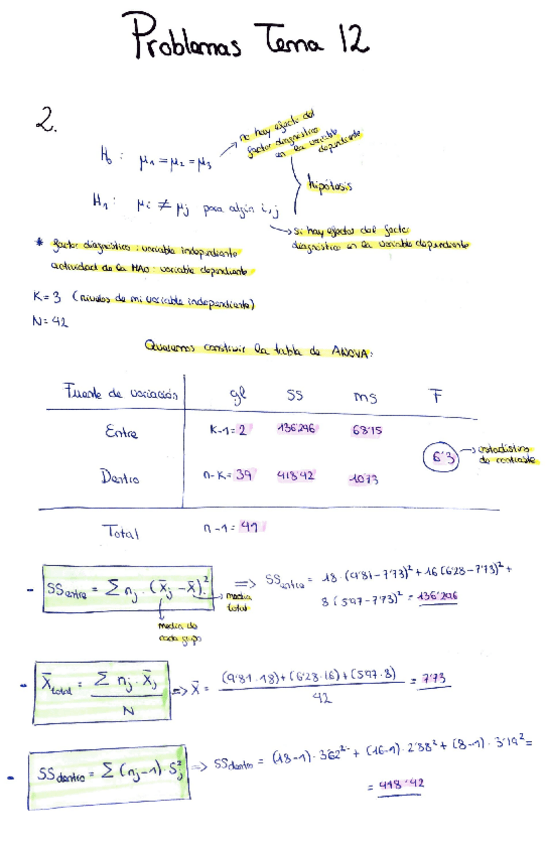 Problemas Tema 12
2.
H₀: μ₁ = μ₂ = μ₃
no hay efecto del
factor diagnóstico
en la variable
dependiente
hipótesis
H₁: μi ≠ μj para algún i, j
si hay efecto del factor
diagnóstico en la variable dependiente
* factor diagnóstico: variable independiente
actividad de la MAO: variable dependiente
K = 3 (niveles de mi variable independiente)
N = 42
Queremos construir la tabla de ANOVA:
Fuente de variación gl SS MS F
Entre K-1 = 2 136'296 68'15
6'3 estadístico
de contraste
Dentro n-K = 39 418'42 10'73
Total n-1 = 41
- SSentre = Σ nj · (x̄j - x̄)² => SSentre = 18 · (9'81 - 7'73)² + 16 (6'28 - 7'73)² +
8 (5'97 - 7'73)² = 136'296
media
total
media de
cada grupo
- X̄total = Σ nj · X̄j / N => X̄ = (9'81 · 18) + (6'28 · 16) + (5'97 · 8) / 42 = 7'73
- SSdentro = Σ (nj - 1) · Sj² => SSdentro = (18-1) · 3'62² + (16-1) · 2'88² + (8-1) · 3'19² =
= 418'42